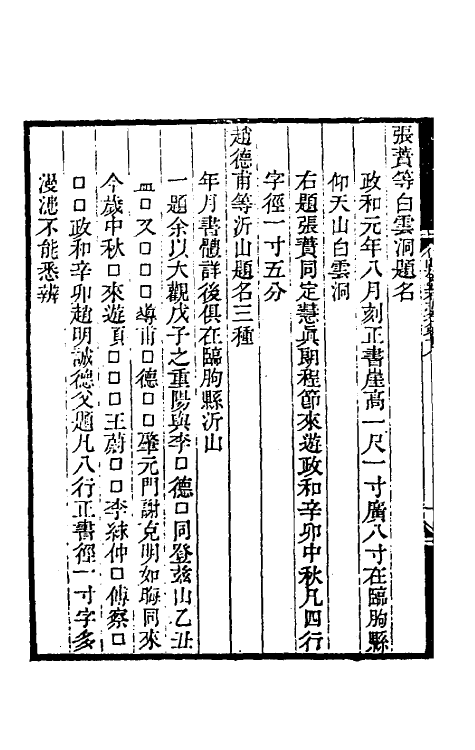 張蕡等白雲洞題名
政和元年八月刻正書崖高一尺一寸廣八寸在臨朐縣
仰天山白雲洞
右題張蕡同定慧眞期程節來遊政和辛卯中秋凡四行
字徑一寸五分
趙德甫等沂山題名三種
年月書體詳後俱在臨朐縣沂山
一題余以大觀戊子之重陽與李□德□同登茲山乙丑
□又□□□導甫□德□□肇元門謝克明如晦同來
今歲中秋□來遊頂□□□王蔚□□李緑仲□傅察□
□□政和辛卯趙明誠德父題凡八行正書徑一寸字多
漫漶不能悉辨